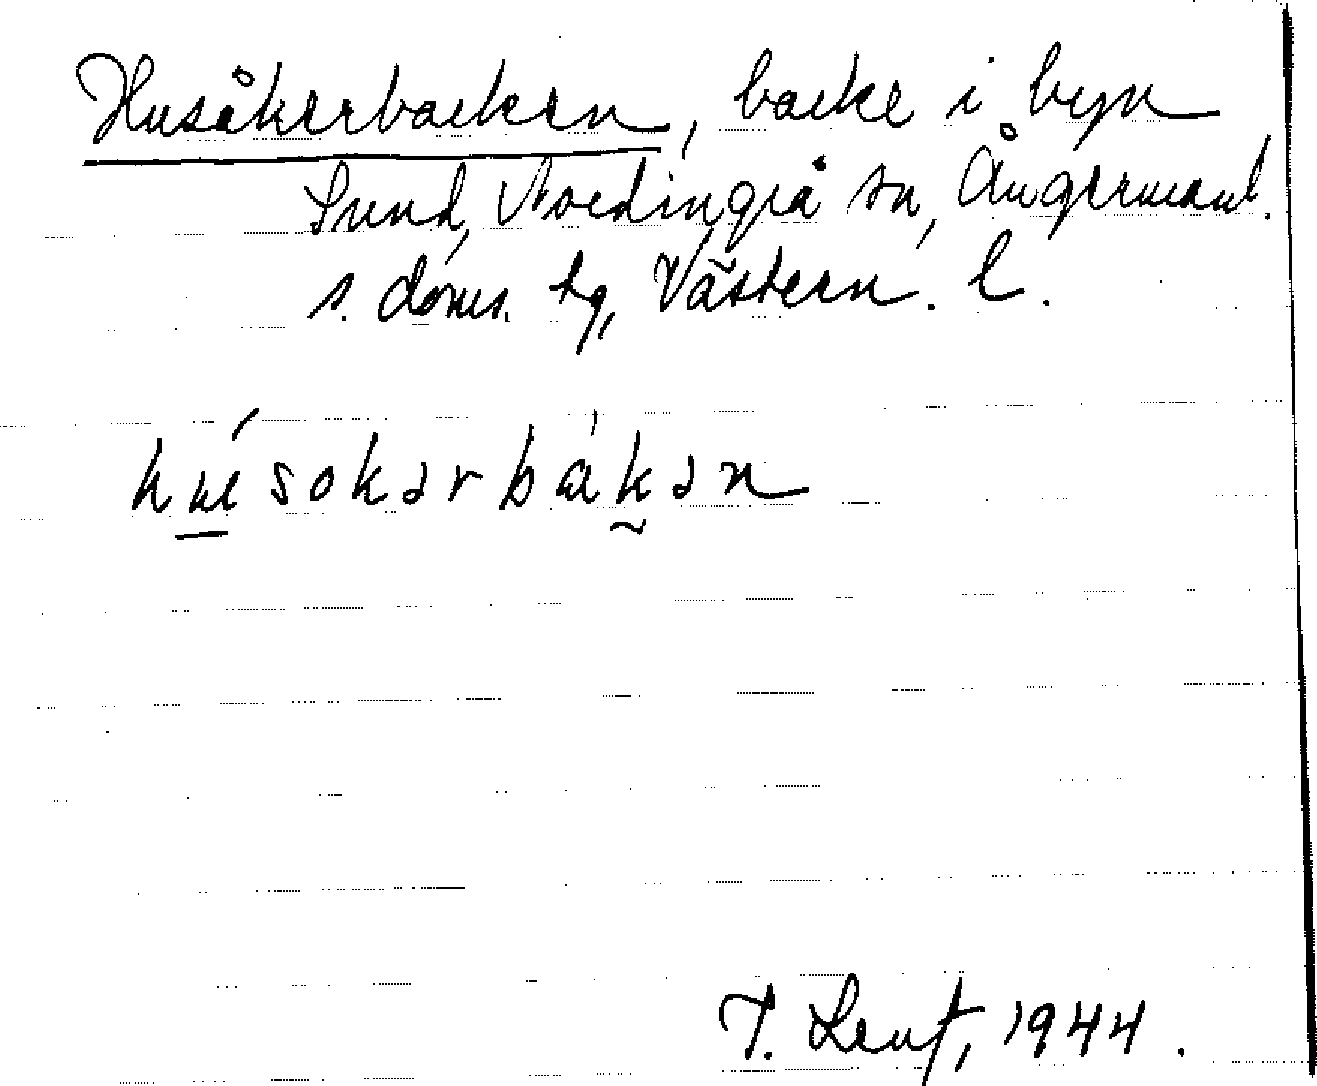 Husåkerbacken, backe i byn
Sund, Nordingrå sn, Ångermanl.
s. doms. tg, Västern. l.
húsokərbàkən
T. Lenf, 1944.